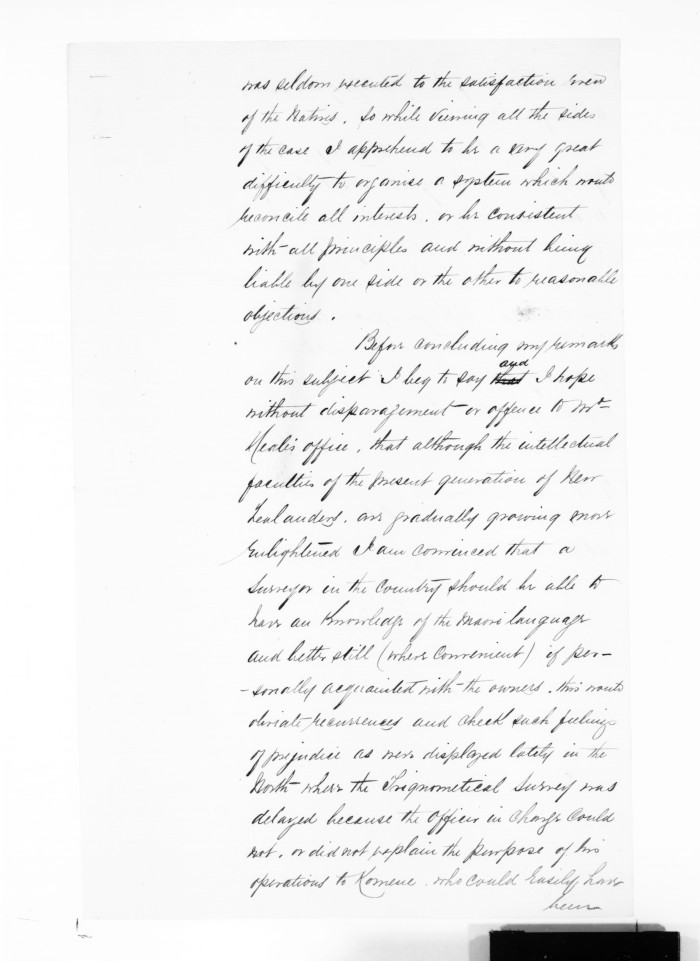 was seldom executed to the satisfaction even
of the Natives. So while viewing all the sides
of the case I apprehend to be a very great
difficulty to organise a system which would
reconcile all interests, or be consistent
with all principles and without being
liable by one side or the other to reasonable
objections.
Before concluding my remarks
on this subject I beg to say that and I hope
without disparagement or offence to Mr
Heale's office, that although the intellectual
faculties of the present generation of New
Zealanders, are gradually growing more
enlightened I am convinced that a
Surveyor in the Country should be able to
have an Knowledge of the Maori language
and better still (where convenient) if per-
-sonally acquainted with the owners, this would
obviate recurrenses and check such feelings
of prejudice as were displayed lately in the
North where the Trignometical Survey was
delayed because the Officer in charge could
not, or did not explain the purpose of his
operations to Komene who could easily have
been